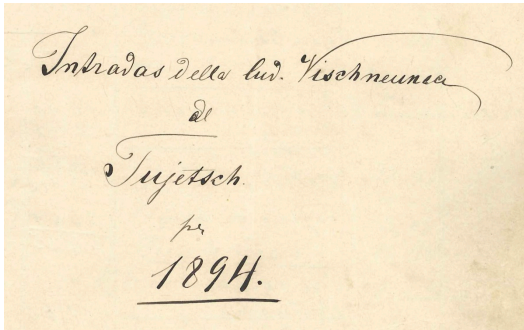 Intradas della lud. Vischneunca
de
Tujetsch
per
1894.